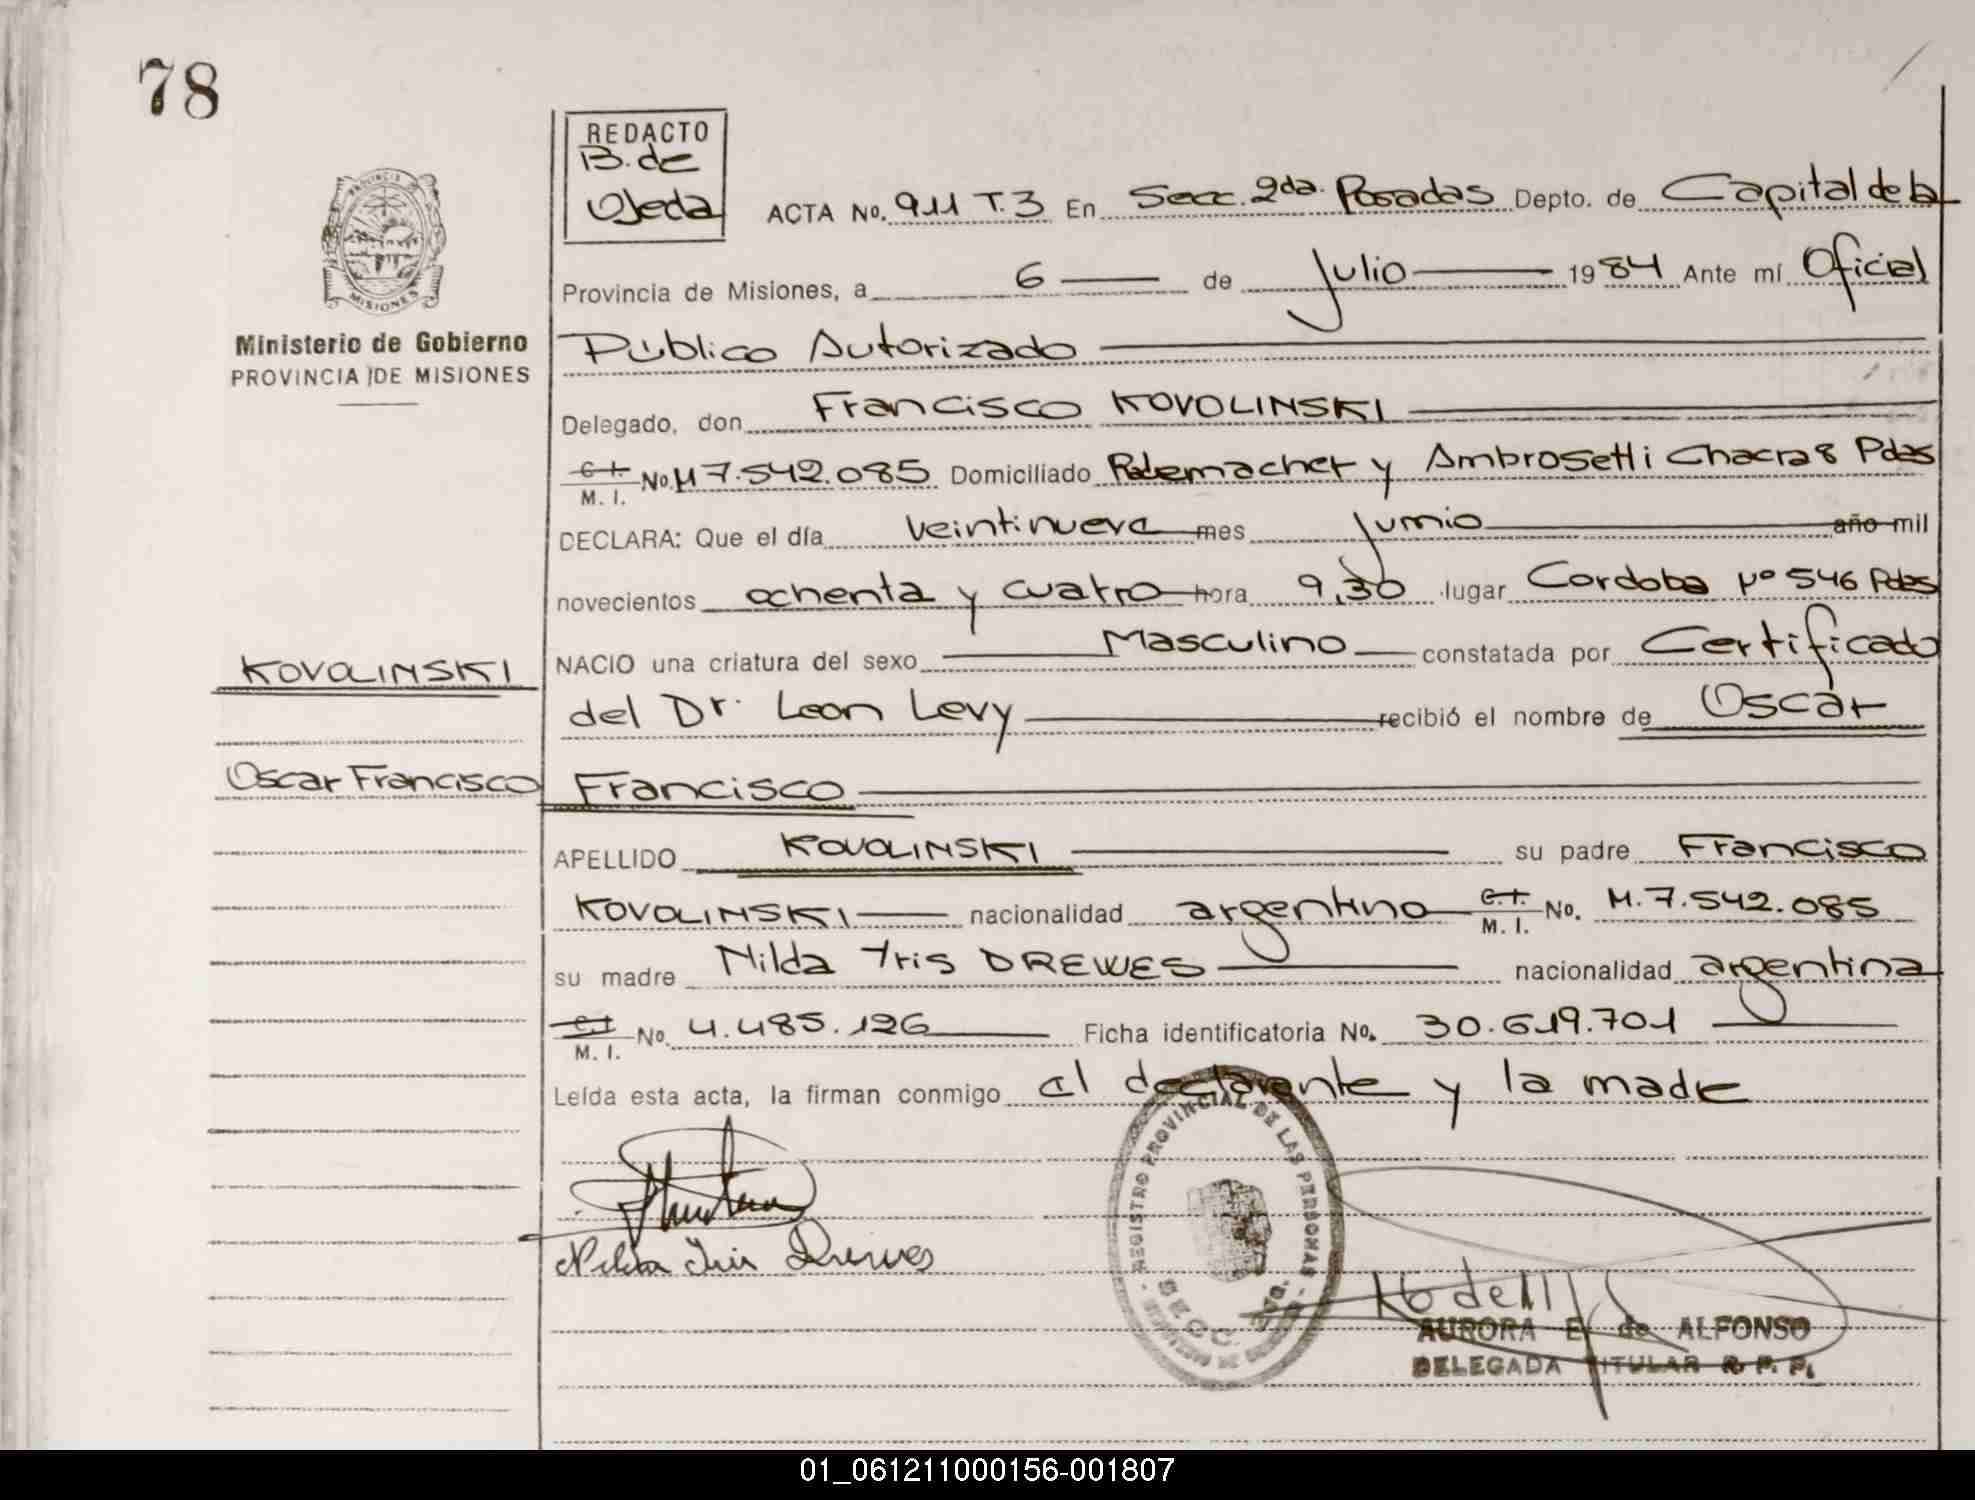 78
REDACTO
B. de
Ojeda
ACTA No. 911 T.3 En Secc. 2da. Posadas Depto. de Capital de la
Provincia de Misiones, a 6 de Julio 1984 Ante mí Oficial
Ministerio de Gobierno
PROVINCIA DE MISIONES
Público Autorizado
Delegado, don Francisco KOVOLINSKI
C.I. M. I. No. M 7.542.085 Domiciliado Rademacher y Ambrosetti Chacra 8 Pdas
DECLARA: Que el día veintinueve mes junio año mil
novecientos ochenta y cuatro hora 9,30 lugar Cordoba Nº 546 Pdas
KOVOLINSKI
NACIO una criatura del sexo Masculino constatada por Certificado
del Dr. Leon Levy recibió el nombre de Oscar
Oscar Francisco
Francisco
APELLIDO KOVOLINSKI su padre Francisco
KOVOLINSKI nacionalidad argentino C.I. M. I. No. M. 7.542.085
su madre Nilda Iris DREWES nacionalidad argentina
C.I. M. I. No. 4.485.126 Ficha identificatoria No. 30.619.701
Leída esta acta, la firman conmigo el declarante y la madre
Nilda Iris Drewes
REGISTRO PROVINCIAL DE LAS PERSONAS
SECC.
AURORA E. de ALFONSO
DELEGADA TITULAR R. P. P.
PROVINCIA
MISIONES
01_061211000156-001807